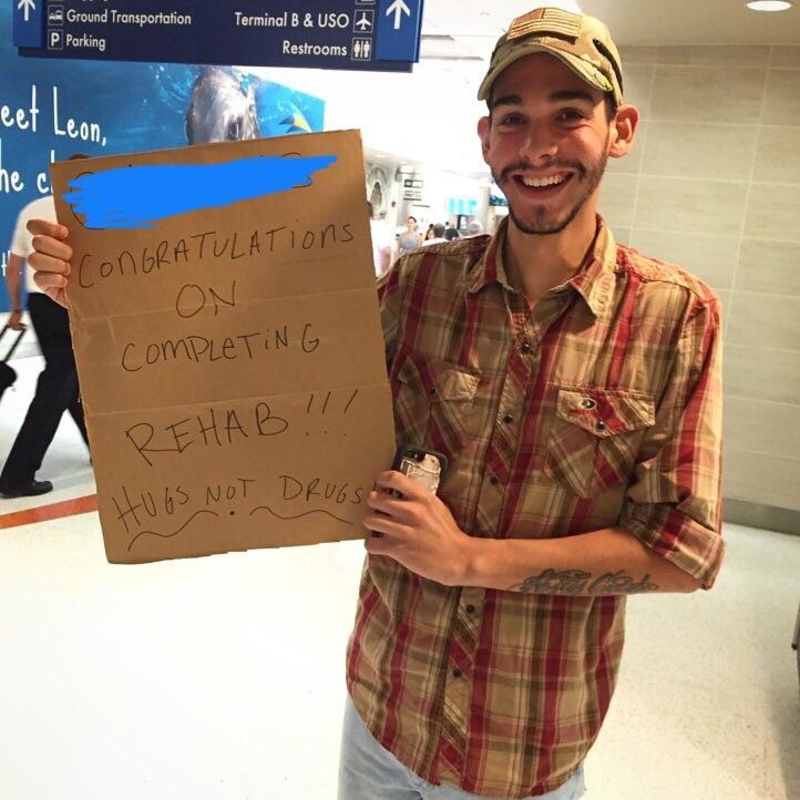 Ground Transportation
P Parking
Terminal B & USO
Restrooms
eet Leon,
he c
CONGRATULATIONS
ON
COMPLETING
REHAB!!!
HUGS NOT DRUGS